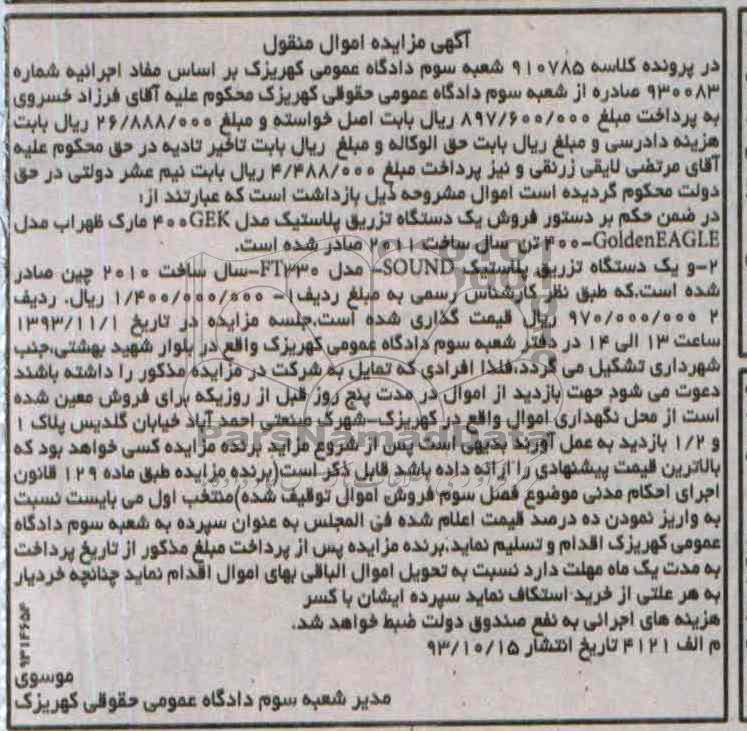 آگهی مزایده اموال منقول
در پرونده کلاسه ۹۱۰۷۸۵ شعبه سوم دادگاه عمومی کهریزک بر اساس مفاد اجرائیه شماره
۹۳۰۰۸۳ صادره از شعبه سوم دادگاه عمومی حقوقی کهریزک محکوم علیه آقای فرزاد خسروی
به پرداخت مبلغ ۸۹۷/۶۰۰/۰۰۰ ریال بابت اصل خواسته و مبلغ ۲۶/۸۸۸/۰۰۰ ریال بابت
هزینه دادرسی و مبلغ ریال بابت حق الوکاله و مبلغ ریال بابت تاخیر تادیه در حق محکوم علیه
آقای مرتضی لایقی زرنقی و نیز پرداخت مبلغ ۴/۴۸۸/۰۰۰ ریال بابت نیم عشر دولتی در حق
دولت محکوم گردیده است اموال مشروحه ذیل بازداشت است که عبارتند از:
در ضمن حکم بر دستور فروش یک دستگاه تزریق پلاستیک مدل ۴۰۰GEK مارک ظهراب مدل
۴۰۰-GoldenEAGLE تن سال ساخت ۲۰۱۱ صادر شده است.
۲-و یک دستگاه تزریق پلاستیک SOUND- مدل FT۳۳۰-سال ساخت ۲۰۱۰ چین صادر
شده است.که طبق نظر کارشناس رسمی به مبلغ ردیف۱- ۱/۴۰۰/۰۰۰/۰۰۰ ریال. ردیف
۲ ۹۷۰/۰۰۰/۰۰۰ ریال قیمت گذاری شده است.جلسه مزایده در تاریخ ۱۳۹۳/۱۱/۱
ساعت ۱۳ الی ۱۴ در دفتر شعبه سوم دادگاه عمومی کهریزک واقع در بلوار شهید بهشتی،جنب
شهرداری تشکیل می گردد،فلذا افرادی که تمایل به شرکت در مزایده مذکور را داشته باشند
دعوت می شود جهت بازدید از اموال در مدت پنج روز قبل از روزیکه برای فروش معین شده
است از محل نگهداری اموال واقع در کهریزک-شهرک صنعتی احمد آباد خیابان گلدیس پلاک ۱
و ۱/۲ بازدید به عمل آورند بدیهی است پس از شروع مزاید برنده مزایده کسی خواهد بود که
بالاترین قیمت پیشنهادی را ارائه داده باشد قابل ذکر است(برنده مزایده طبق ماده ۱۲۹ قانون
اجرای احکام مدنی موضوع فصل سوم فروش اموال توقیف شده)منتخب اول می بایست نسبت
به واریز نمودن ده درصد قیمت اعلام شده فی المجلس به عنوان سپرده به شعبه سوم دادگاه
عمومی کهریزک اقدام و تسلیم نماید.برنده مزایده پس از پرداخت مبلغ مذکور از تاریخ پرداخت
به مدت یک ماه مهلت دارد نسبت به تحویل اموال الباقی بهای اموال اقدام نماید چنانچه خردیار
به هر علتی از خرید استکاف نماید سپرده ایشان با کسر
هزینه های اجرائی به نفع صندوق دولت ضبط خواهد شد.
م الف ۴۱۲۱ تاریخ انتشار ۹۳/۱۰/۱۵
موسوی
مدیر شعبه سوم دادگاه عمومی حقوقی کهریزک
۹۳۱۴۶۵۴
ParsNamadData